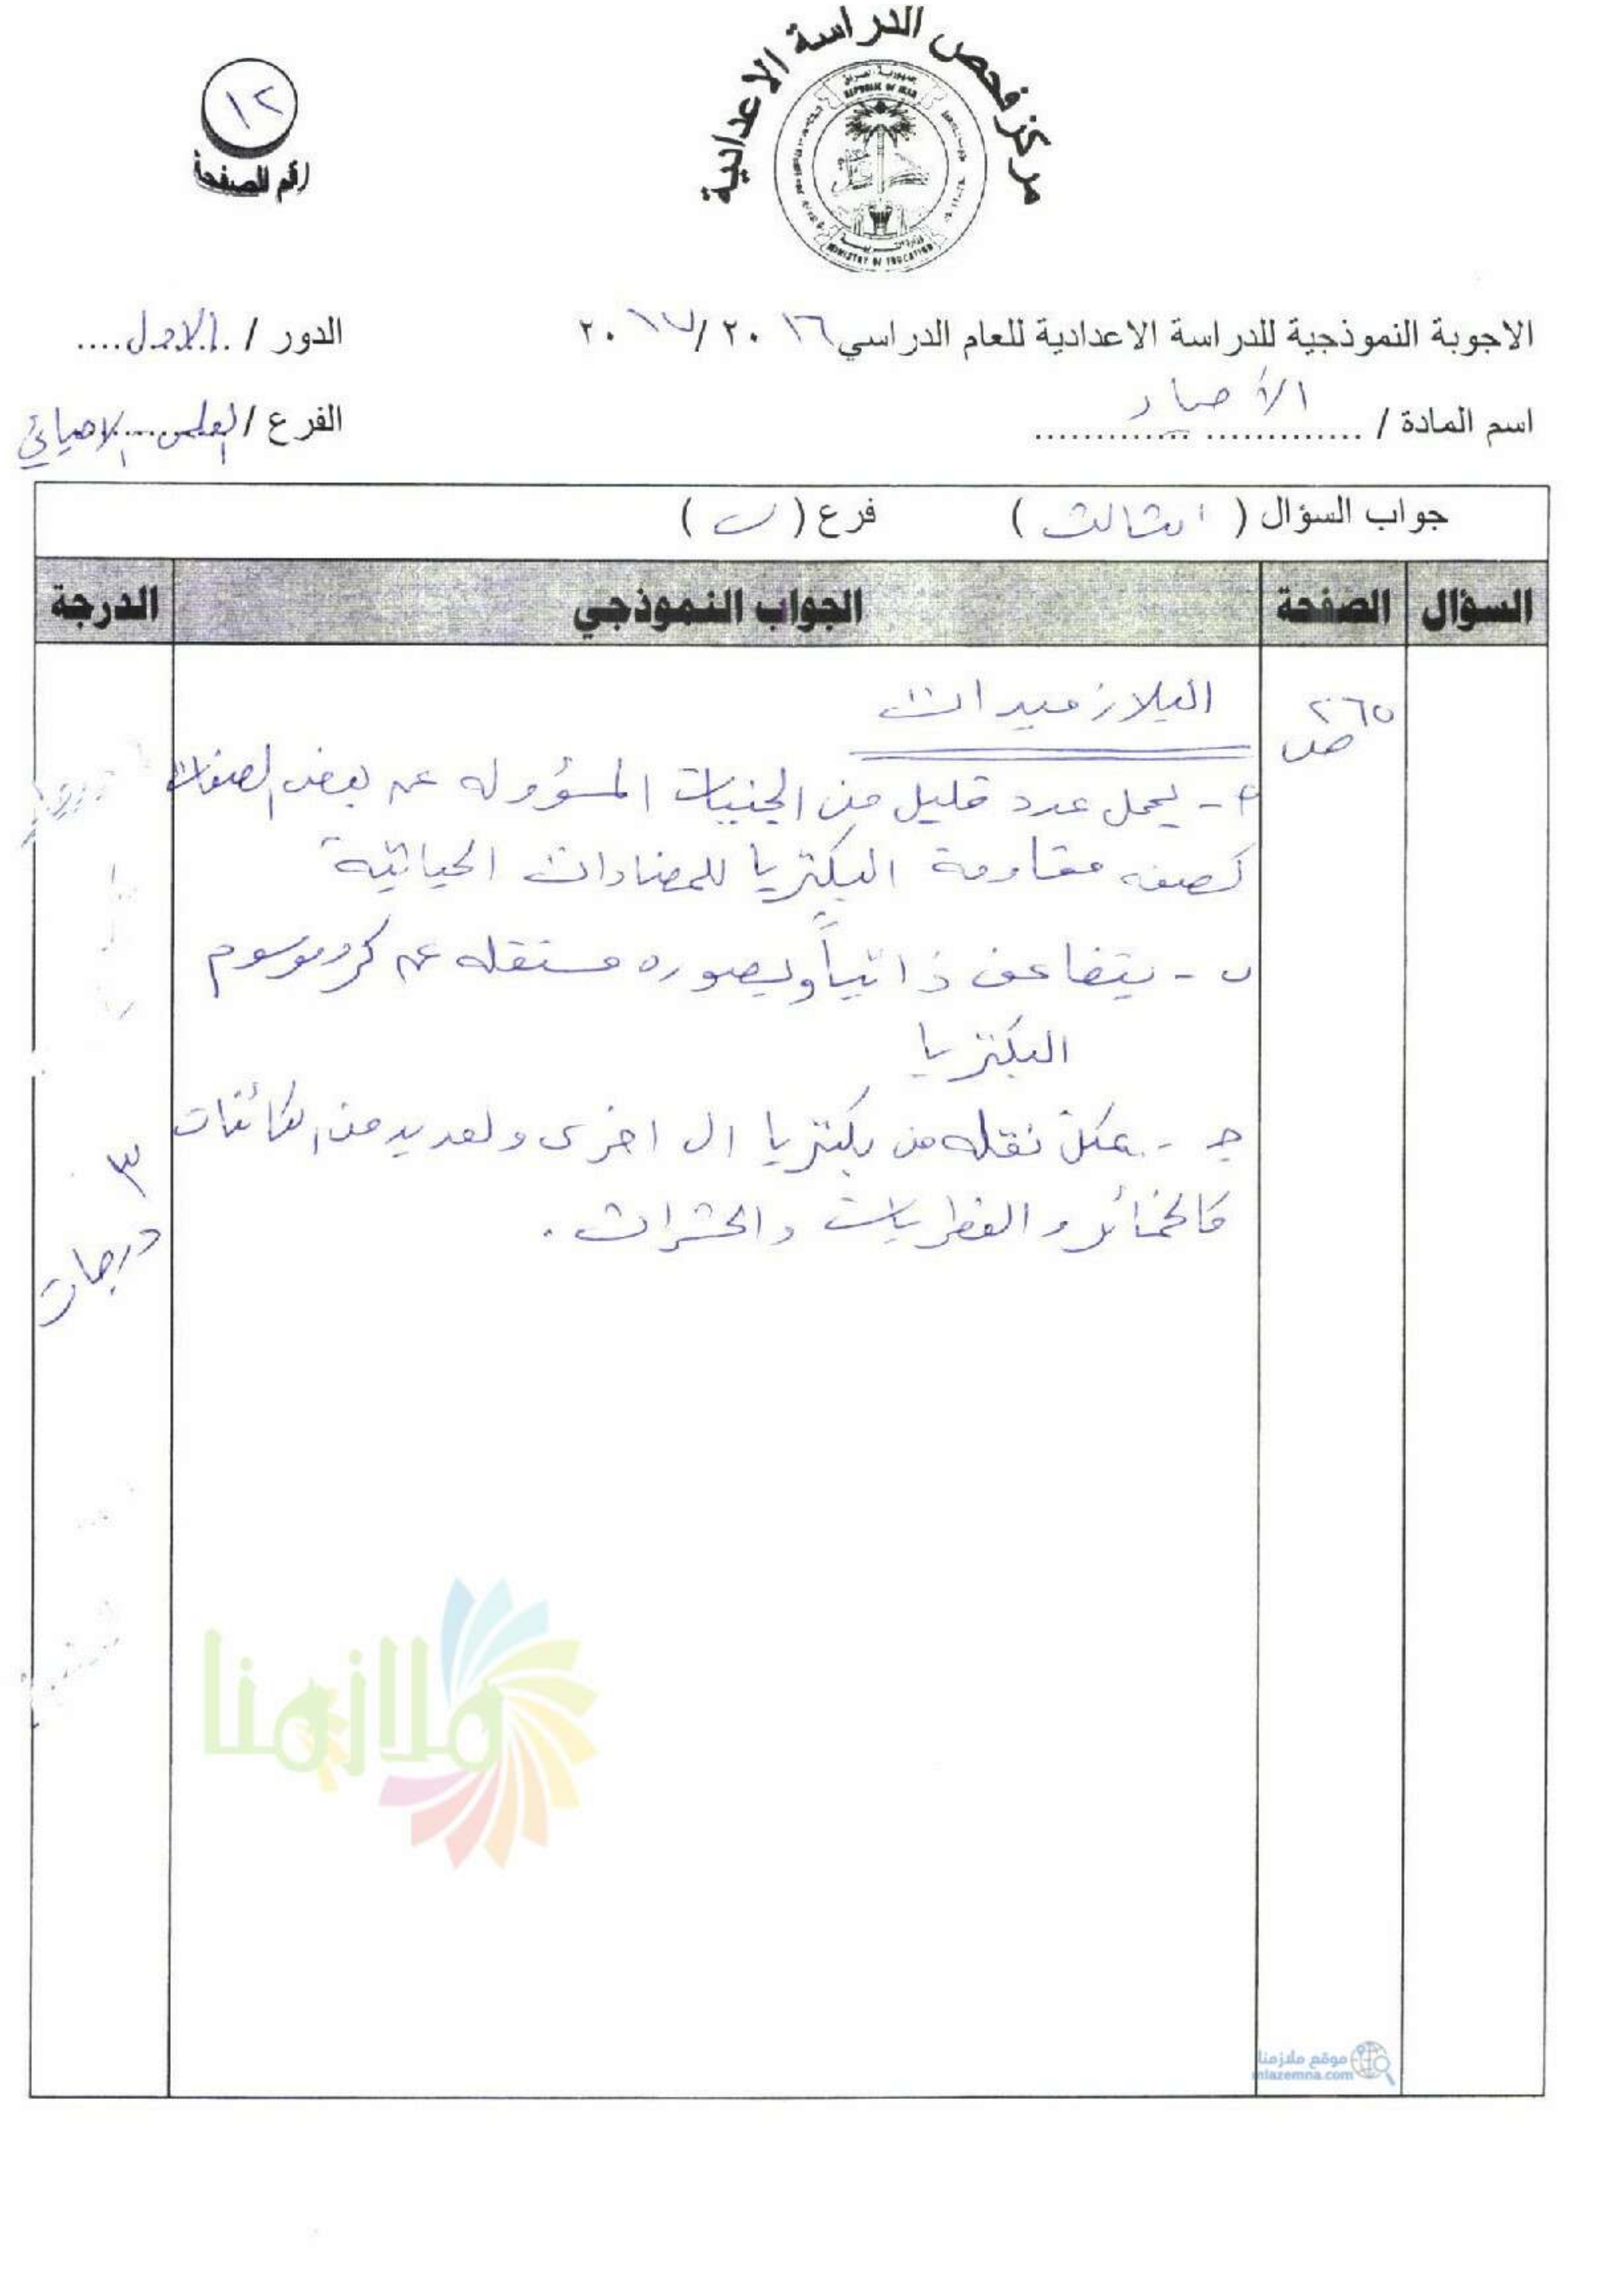 مركز فحص الدراسة الاعدادية
REPUBLIC OF IRAQ
MINISTRY OF EDUCATION
١٢
رقم الصفحة
الاجوبة النموذجية للدراسة الاعدادية للعام الدراسي ٢٠١٦ / ٢٠١٧
الدور / الاول
اسم المادة / الأحياء
الفرع / العلمي الاحيائي
جواب السؤال ( الثالث ) فرع ( ب )
السؤال الصفحة الجواب النموذجي الدرجة
ص ٢٦٥
البلازميدات
أ - يحمل عدد قليل من الجينات المسؤوله عن بعض الصفات
كصفه مقاومة البكتريا للمضادات الحياتية
ب - يتضاعف ذاتياً وبصوره مستقله عن كروموسوم
البكتريا
ج - يمكن نقله من بكتريا الى اخرى ولعديد من الكائنات
كالخمائر والفطريات والحشرات .
٣ درجات
ملازمنا
موقع ملازمنا
mlazemna.com